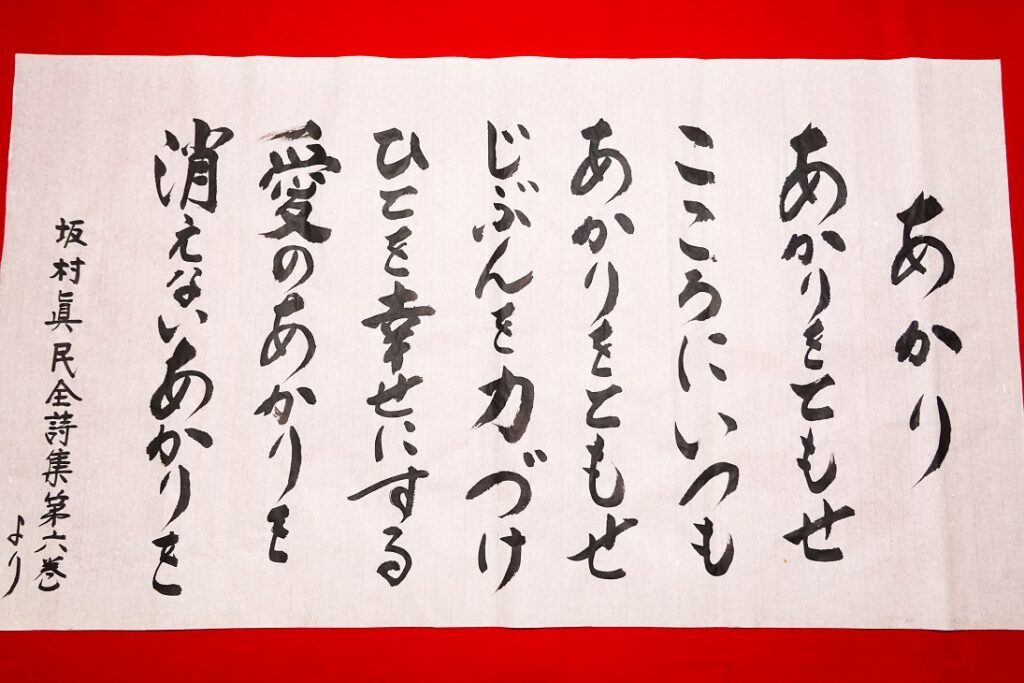 あかり
あかりをともせ
こころにいつも
あかりをともせ
じぶんを力づけ
ひとを幸せにする
愛のあかりを
消えないあかりを
坂村眞民全詩集第六巻
より